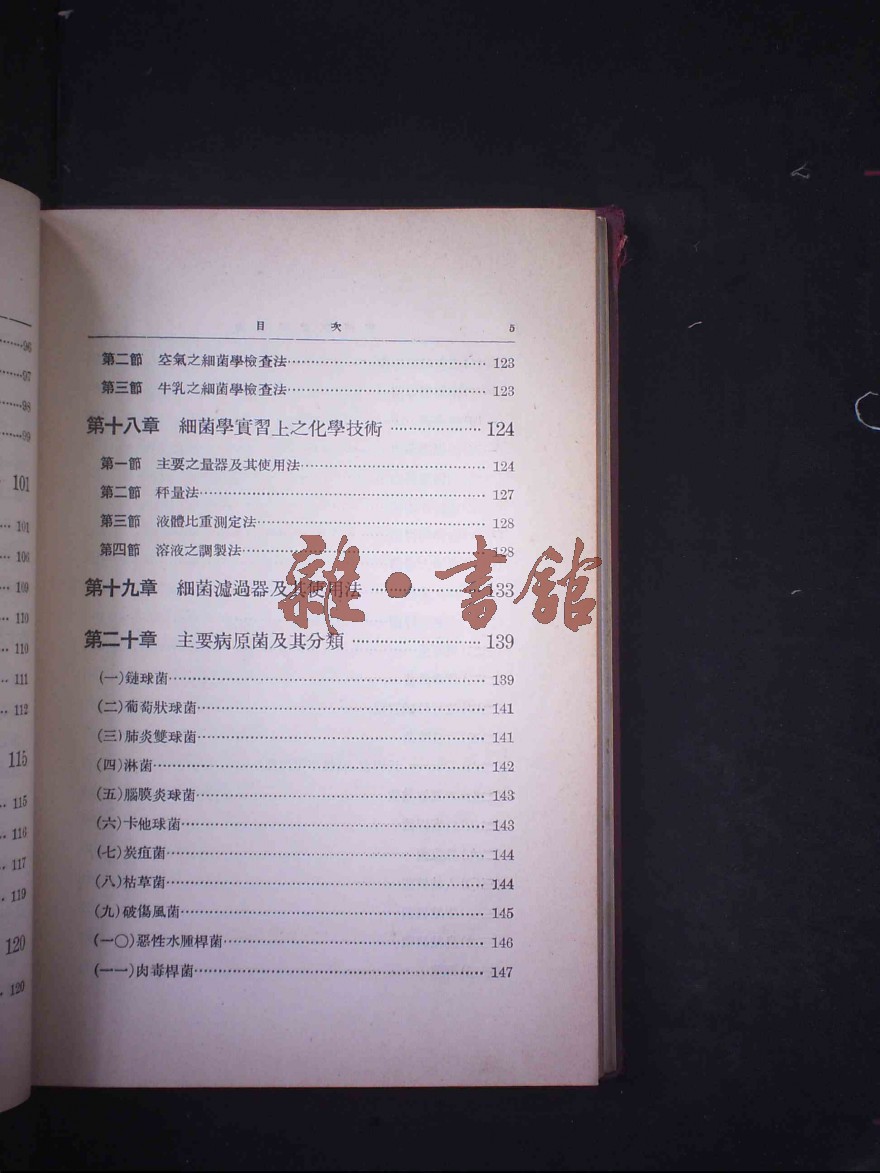 96
97
98
99
101
101
106
109
110
110
111
112
115
115
116
117
119
120
120
目 次 5
第二節 空氣之細菌學檢查法 123
第三節 牛乳之細菌學檢查法 123
第十八章 細菌學實習上之化學技術 124
第一節 主要之量器及其使用法 124
第二節 秤量法 127
第三節 液體比重測定法 128
第四節 溶液之調製法 128
第十九章 細菌濾過器及其使用法 133
第二十章 主要病原菌及其分類 139
(一)鏈球菌 139
(二)葡萄狀球菌 141
(三)肺炎雙球菌 141
(四)淋菌 142
(五)腦膜炎球菌 143
(六)卡他球菌 143
(七)炭疽菌 144
(八)枯草菌 144
(九)破傷風菌 145
(一〇)惡性水腫桿菌 146
(一一)肉毒桿菌 147
雜·書館